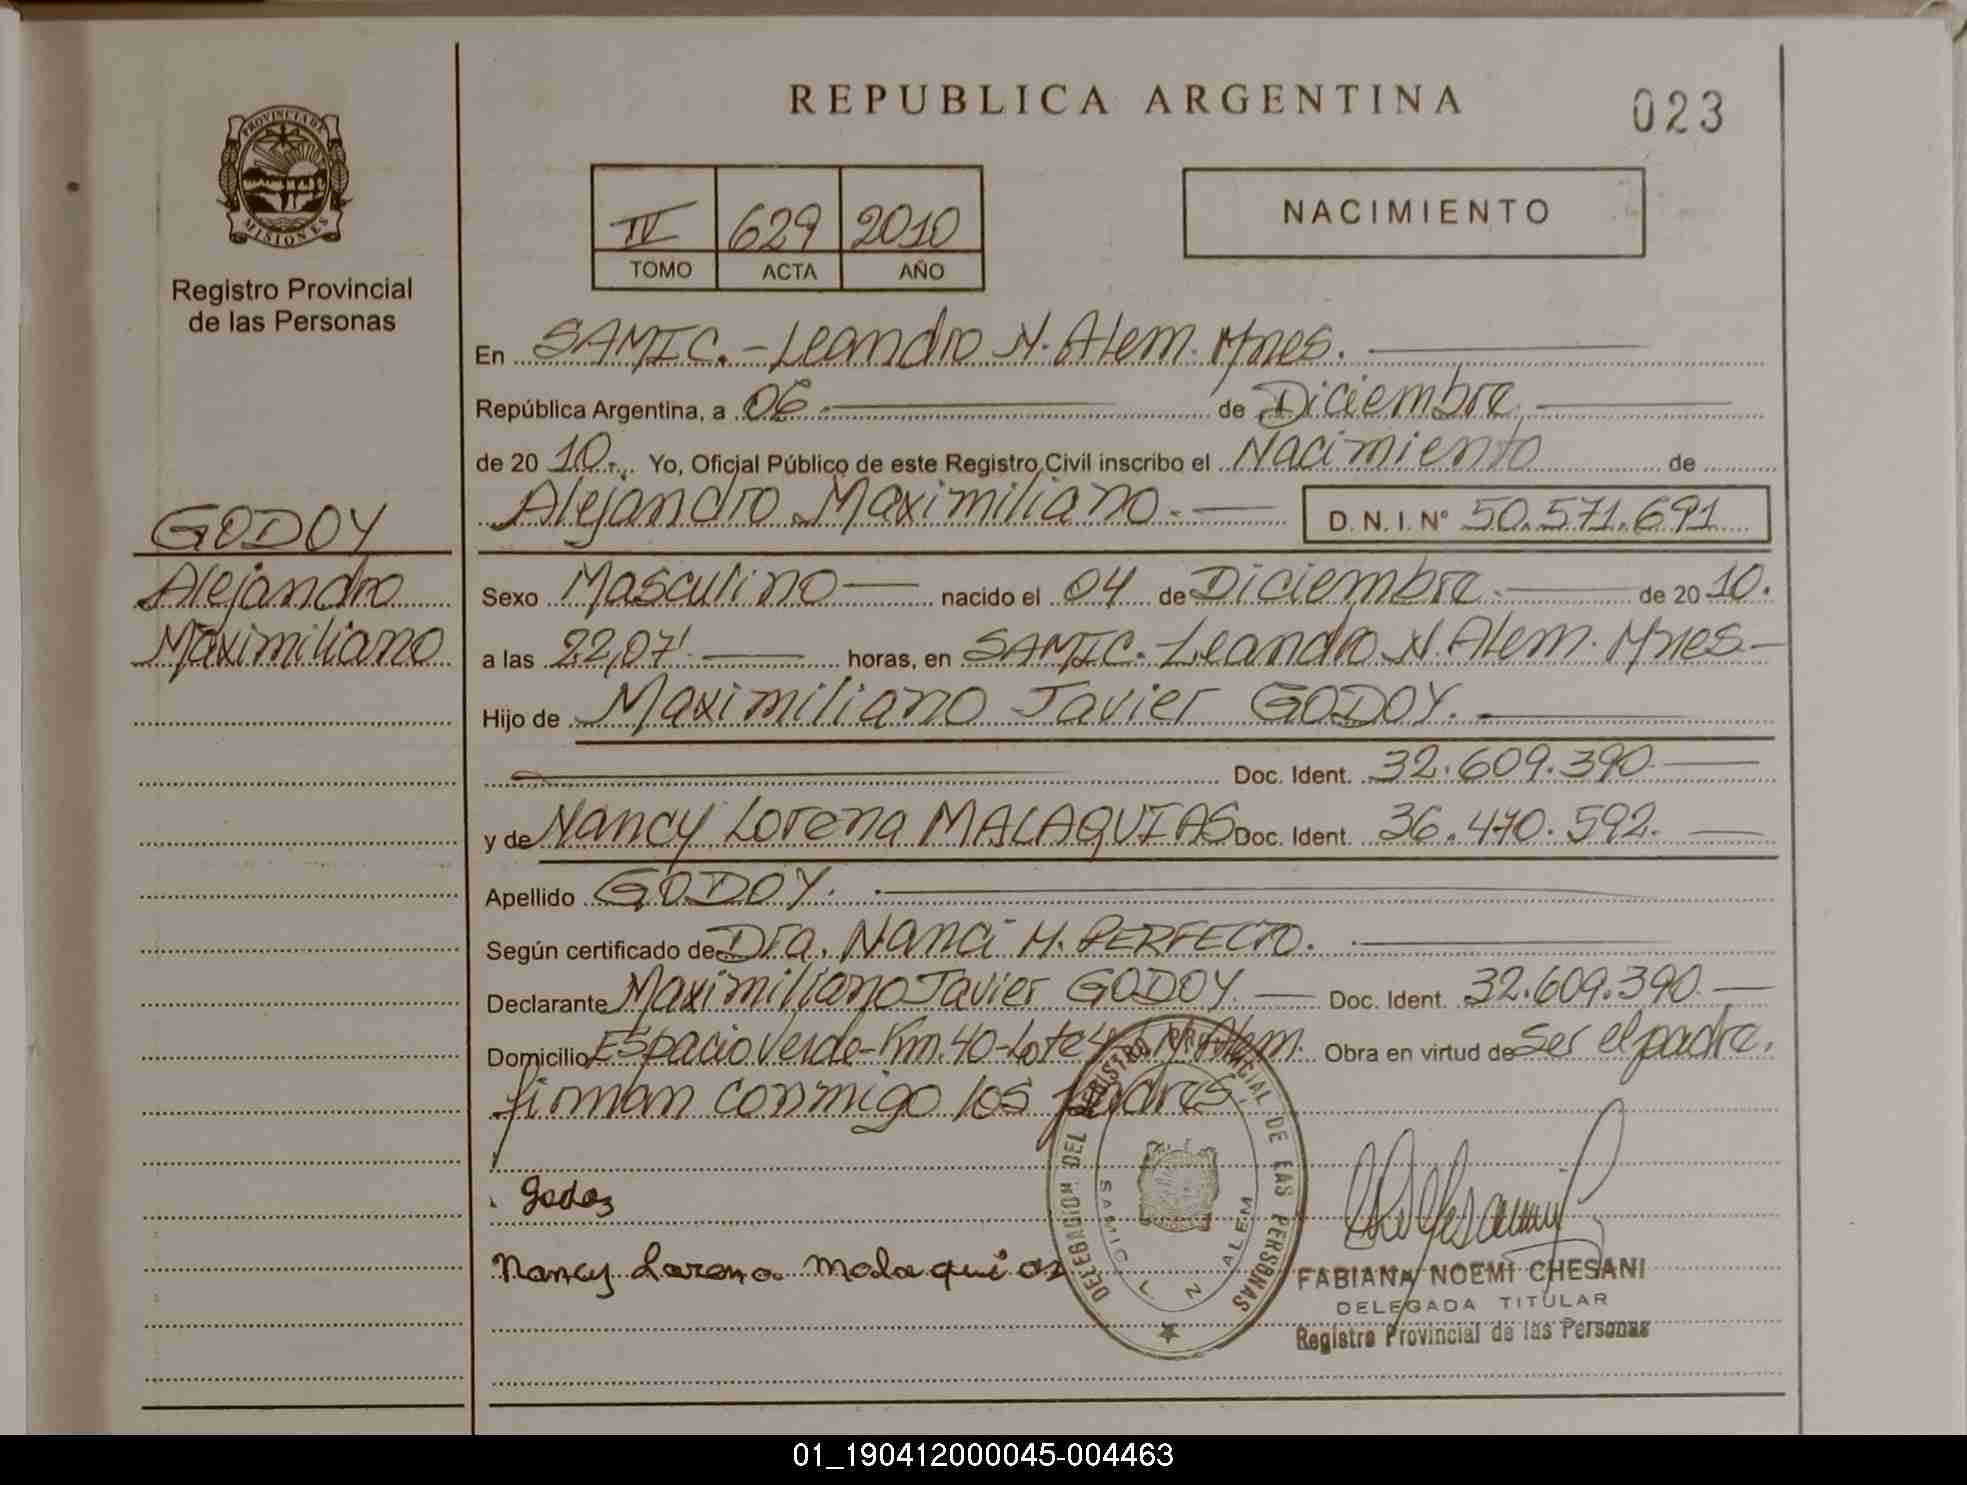 REPUBLICA ARGENTINA
023
PROVINCIA DE
MISIONES
Registro Provincial
de las Personas
IV 629 2010
TOMO ACTA AÑO
NACIMIENTO
En SAMIC.-Leandro N. Alem. Mnes.
República Argentina, a 06 de Diciembre
de 2010. Yo, Oficial Público de este Registro Civil inscribo el Nacimiento de
Alejandro Maximiliano. D. N. I. N° 50.571.691
GODOY
Alejandro
Maximiliano
Sexo Masculino nacido el 04 de Diciembre de 2010.
a las 22,07' horas, en SAMIC.-Leandro N. Alem. Mnes-
Hijo de Maximiliano Javier GODOY.
Doc. Ident. 32.609.390
y de Nancy Lorena MALAQUIAS Doc. Ident. 36.470.592.
Apellido GODOY.
Según certificado de Dra. Nanci M. PERFECTO.
Declarante Maximiliano Javier GODOY Doc. Ident. 32.609.390
Domicilio Espacio Verde-Km.40-Lote Alem. Obra en virtud de Ser el padre.
firman conmigo los padres.
DELEGACION DEL REGISTRO PROVINCIAL DE LAS PERSONAS
SAMIC L N ALEM
godoy
Nancy Lorena malaquias
FABIANA NOEMI CHESANI
DELEGADA TITULAR
Registro Provincial de las Personas
01_190412000045-004463